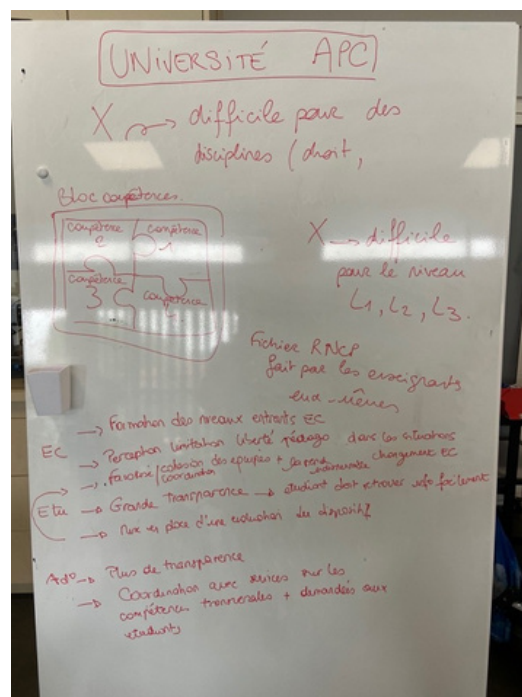 UNIVERSITÉ APC
X → difficile pour des
disciplines (droit,
Bloc compétences
compétence
compétence
1
compétence
3
compétence
X → difficile
pour le niveau
L1, L2, L3.
Fichier RNCP
fait par les enseignants
eux-mêmes
EC → Formation des nouveaux entrants EC
→ Perception limitation liberté pédago dans les situations
→ Favorise cohésion des équipes + changement EC
coordination
Etu → Grande transparence → étudiant doit retrouver info facilement
→ Mise en place d'une évaluation du dispositif
Ad° → Plus de transparence
→ Coordination avec services sur les
compétences transversales + demandées aux
étudiants